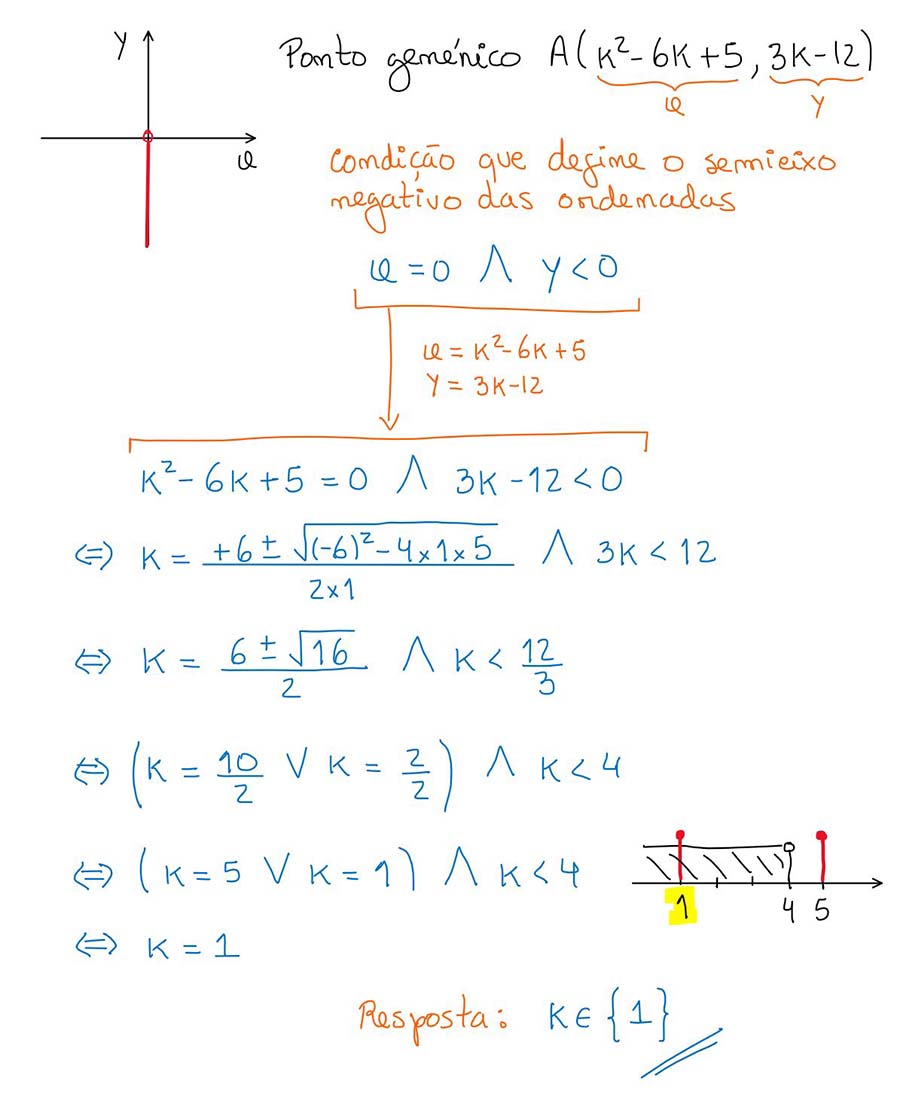 y
Ponto genérico A(k²-6k+5, 3k-12)
x y
x
condição que define o semieixo
negativo das ordenadas
x=0 ∧ y<0
x=k²-6k+5
y=3k-12
k²-6k+5=0 ∧ 3k-12<0
⇔ k = (+6±√((-6)²-4×1×5))/(2×1) ∧ 3k<12
⇔ k = (6±√16)/2 ∧ k<12/3
⇔ (k=10/2 ∨ k=2/2) ∧ k<4
⇔ (k=5 ∨ k=1) ∧ k<4
1 4 5
⇔ k=1
Resposta: k∈{1}